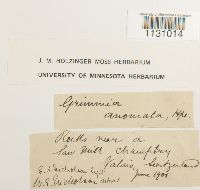 1131014
J. M. HOLZINGER MOSS HERBARIUM
UNIVERSITY OF MINNESOTA HERBARIUM
Grimmia
anomala, Hpe.
Rocks near a
Saw Mill Champéry
Valais, Switzerland
June 1908
W. E. Nicholson